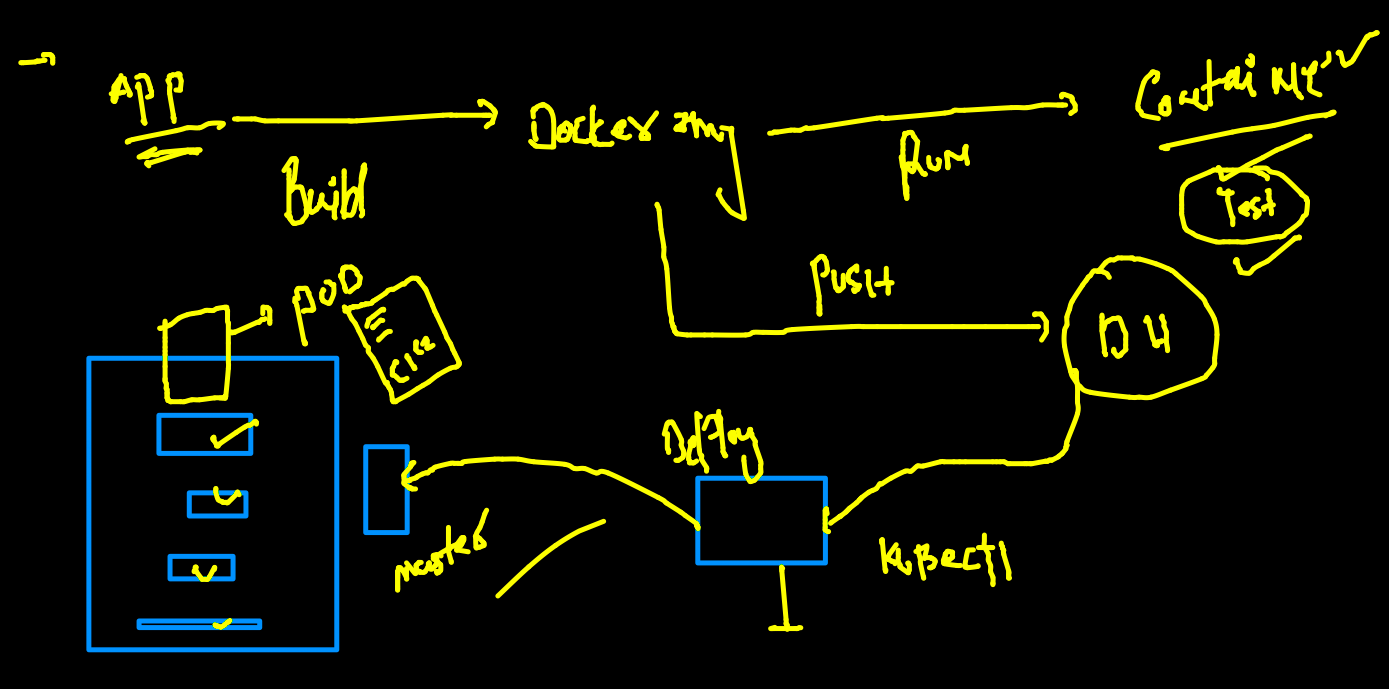 App
Build
Docker Img
Run
Container
Test
Push
DH
POD
Deploy
master
Kubectl